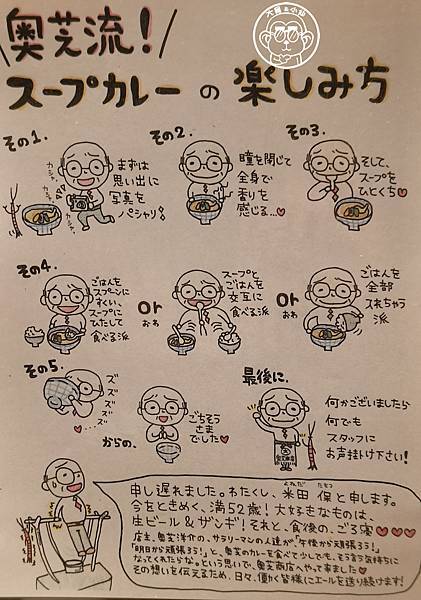 奥芝流!
スープカレーの楽しみ方
大鼻&小妙
その1.
カシャ
カシャ
まずは
思い出に
写真を
パシャリ!
その2.
瞳を閉じて
全身で
香りを
感じる…♡
その3.
そして、
スープを
ひとくち♡
その4.
ごはんを
スプーンに
すくい、
スープに
ひたして
食べる派
Or
おあ
スープと
ごはんを
交互に
食べる派
Or
おあ
ごはんを
全部
入れちゃう
派
その5.
ズズズズズズ
…♡
からの、
ごちそう
さま
でした♡
最後に、
何かございましたら
何でも
スタッフに
お声掛け下さい!
よねだ たもつ
申し遅れました。わたくし、米田 保と申します。
今をときめく、満52歳!大好きなものは、
生ビール&ザンギ!それと、食後の、ごろ寝♡♡♡
店主、奥芝洋介の、サラリーマンの人達が「午後から頑張ろう!」
「明日から頑張ろう!」と、奥芝のカレーを食べて少しでも、そう言う気持ちに
なってくれたらな。という思いで、奥芝商店へやって来ました♡
その想いを伝えるため、日々、働く皆様にエールを送り続けます!